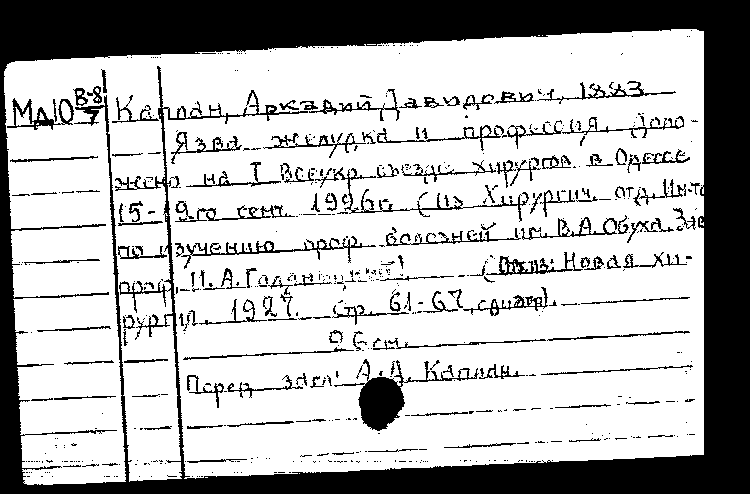 МД10 В-8/7 Каплан, Аркадий Давидович, 1883
Язва желудка и профессия. Доло-
жено на I Всеукр. съезде хирургов в Одессе
15-19го сент. 1926г. (Из Хирургич. отд. Ин-та
по изучению проф. болезней им. В.А. Обуха. Зав
проф. И.А. Голяницкий)
(Отд.: Новая хи-
рургия. 1927. Стр. 61-67,
26 см.
Перед загл: А.Д. Каплан.